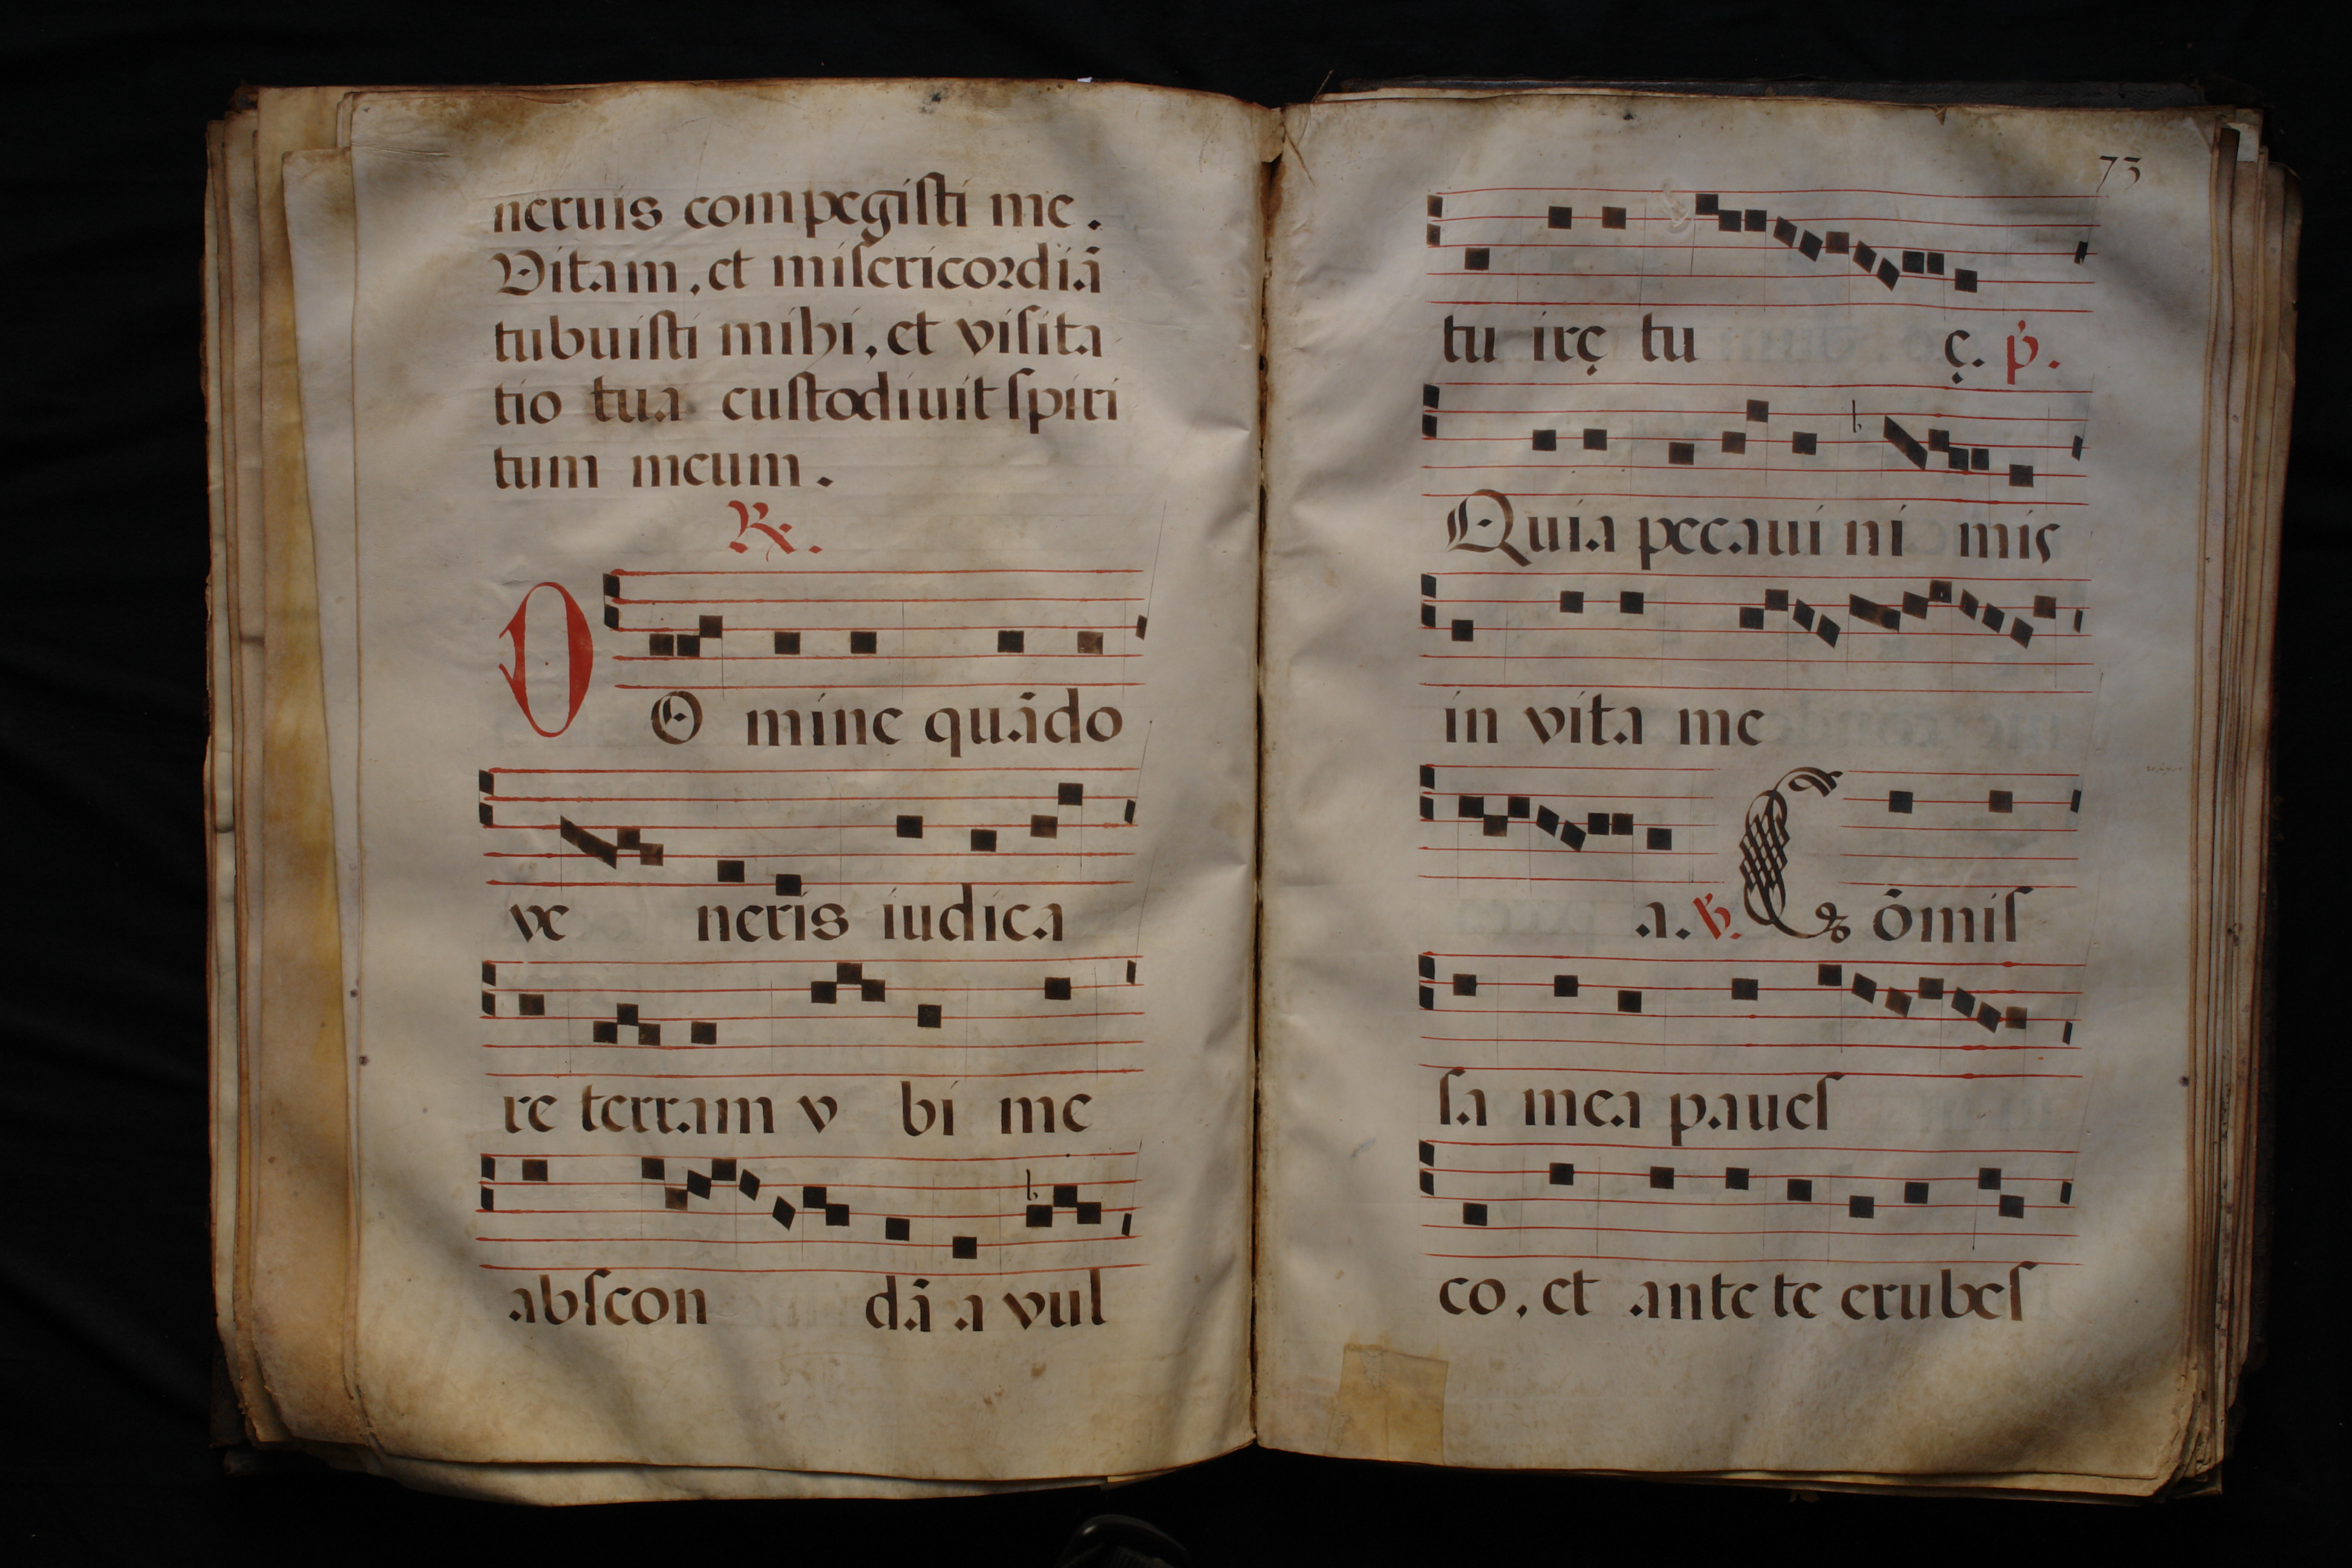 neruis compegisti me.
Vitam, et misericordiā
tubuisti mihi, et visita
tio tua custodiuit spiri
tum meum.
℟.
D O mine quādo
ve neris iudica
re terram v bi me
abscon dā a vul
73
tu irę tu ę. p̄.
Quia pecaui ni mis
in vita me
a. ℣. C ōmis
sa mea paues
co, et ante te erubes